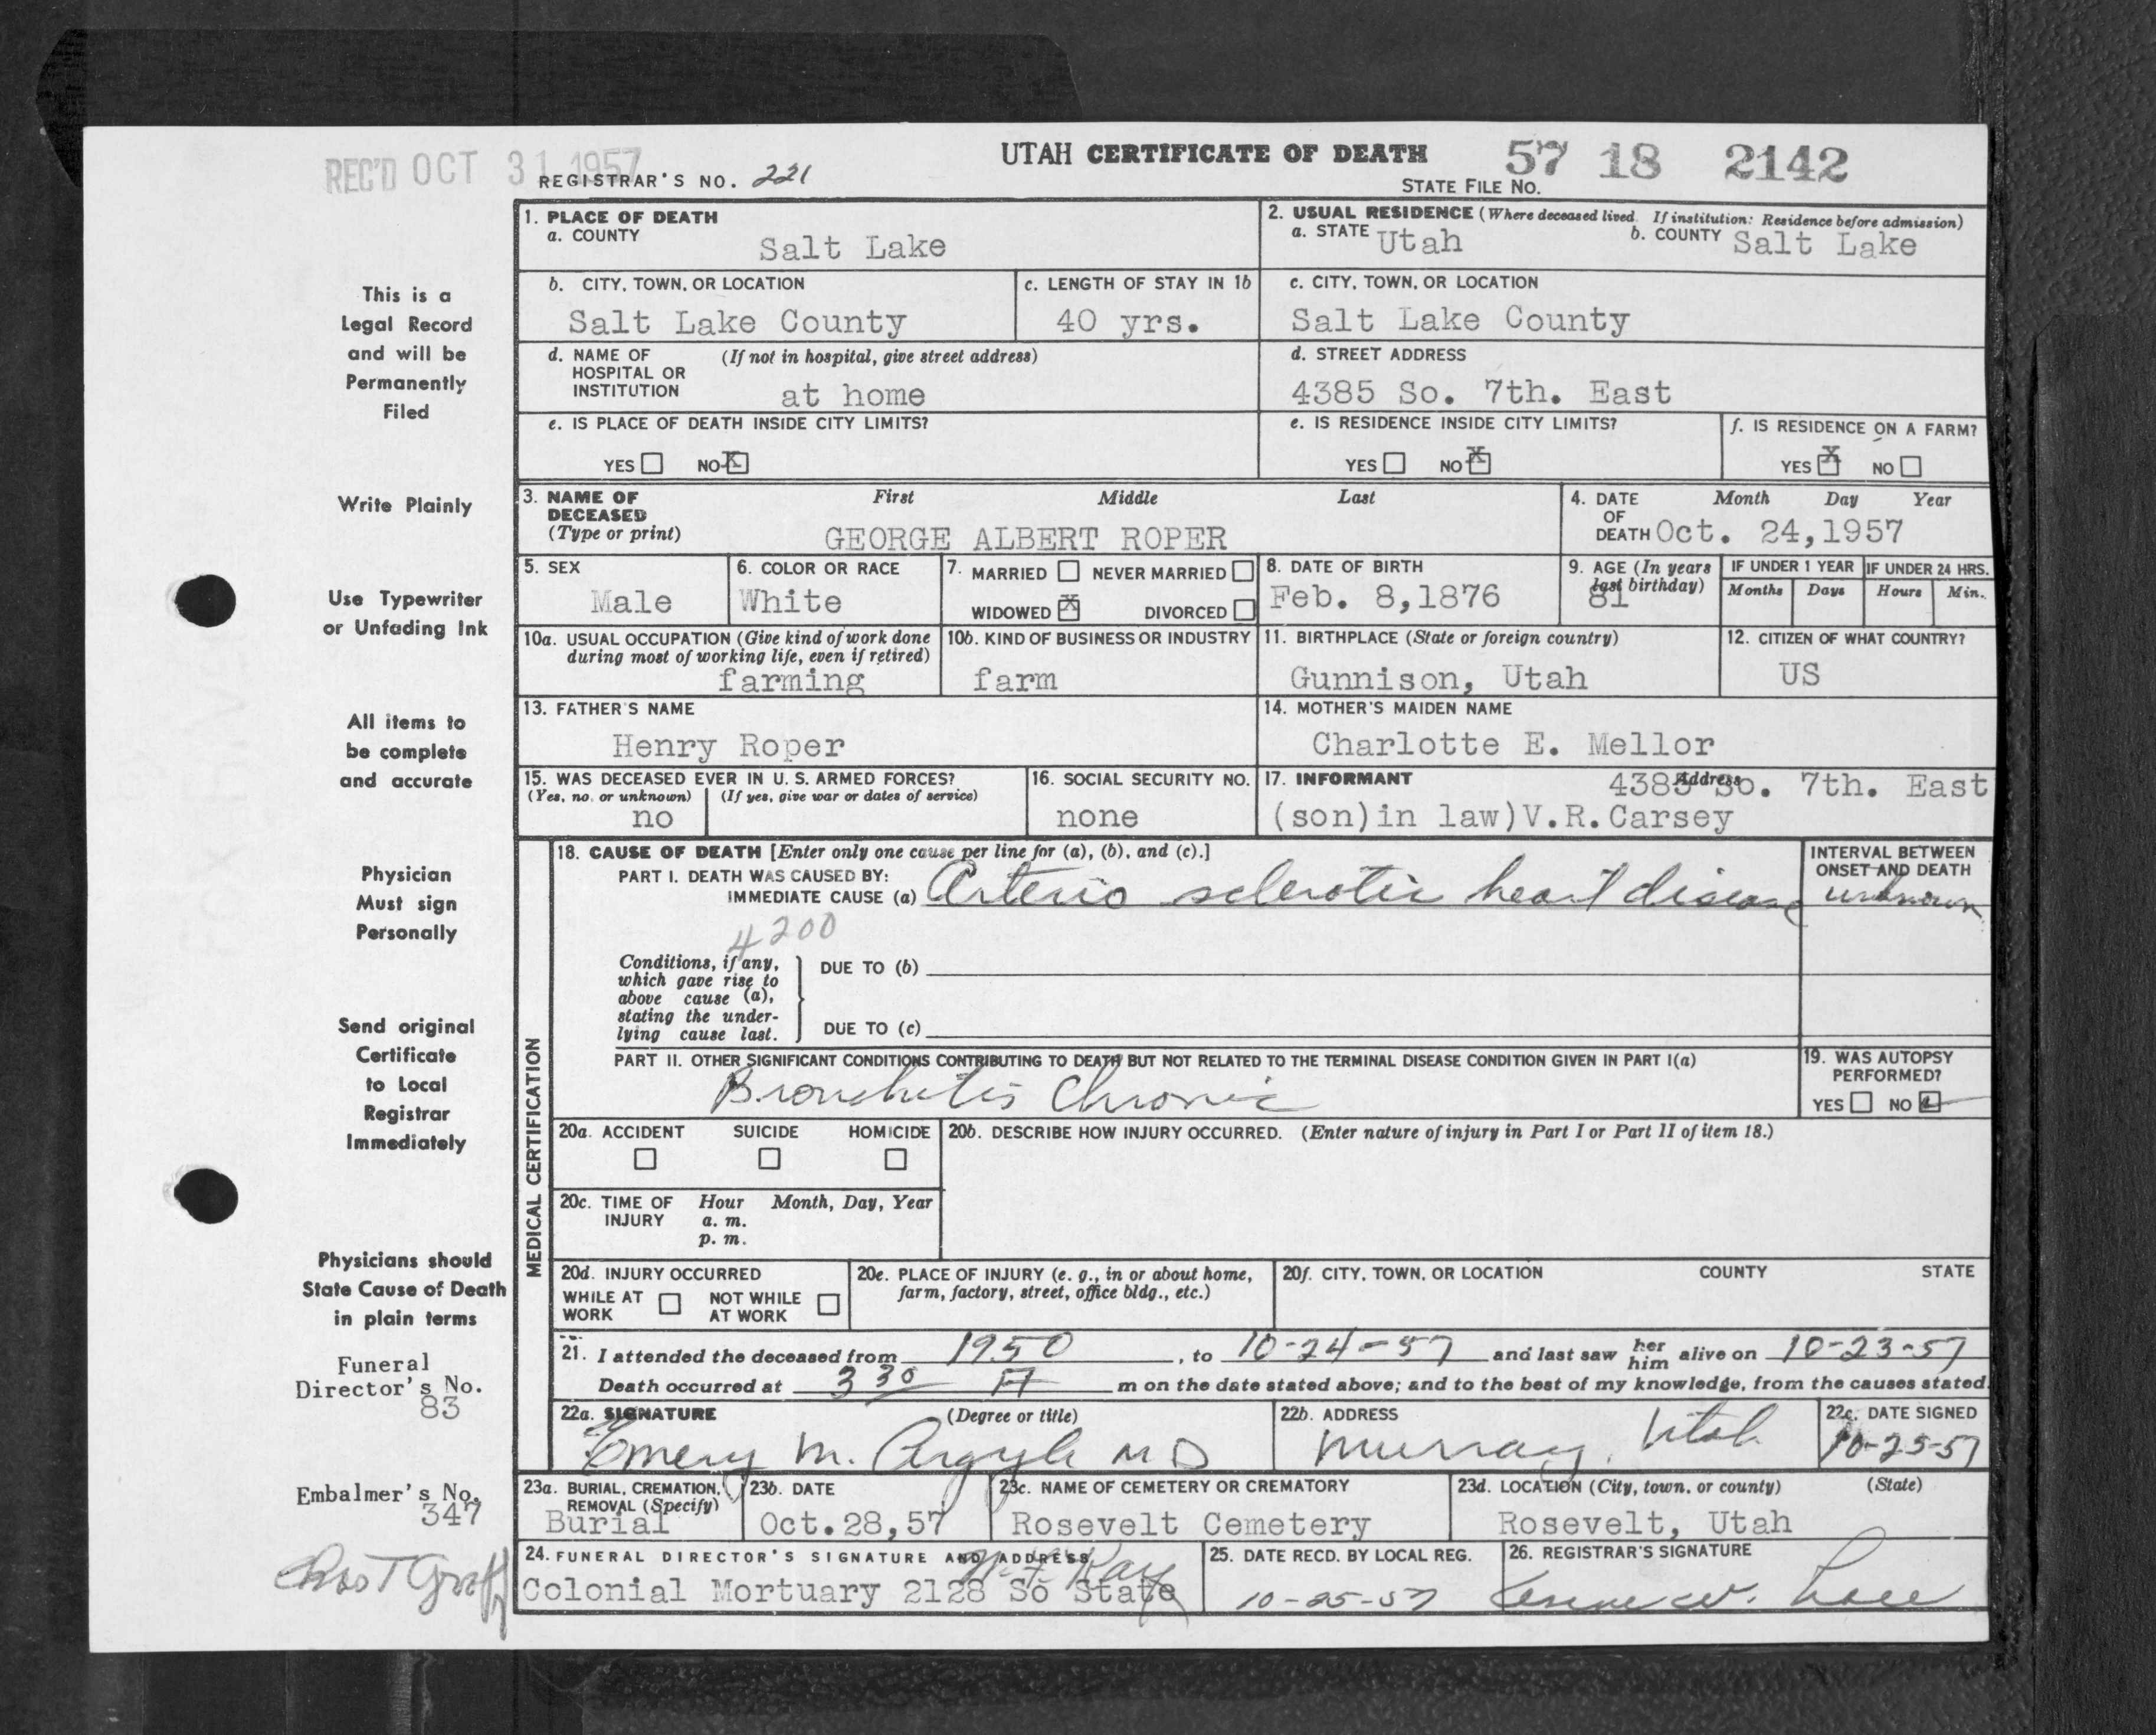 REC'D OCT 31 1957
UTAH CERTIFICATE OF DEATH 57 18 2142
REGISTRAR'S NO. 221
STATE FILE NO.
1. PLACE OF DEATH
a. COUNTY
Salt Lake
2. USUAL RESIDENCE (Where deceased lived. If institution: Residence before admission)
a. STATE Utah b. COUNTY Salt Lake
b. CITY, TOWN, OR LOCATION
Salt Lake County
c. LENGTH OF STAY IN 1b
40 yrs.
c. CITY, TOWN, OR LOCATION
Salt Lake County
d. NAME OF (If not in hospital, give street address)
HOSPITAL OR
INSTITUTION at home
d. STREET ADDRESS
4385 So. 7th. East
e. IS PLACE OF DEATH INSIDE CITY LIMITS?
YES NO X
e. IS RESIDENCE INSIDE CITY LIMITS?
YES NO X
f. IS RESIDENCE ON A FARM?
YES X NO
3. NAME OF First Middle Last
DECEASED
(Type or print) GEORGE ALBERT ROPER
4. DATE Month Day Year
OF
DEATH Oct. 24,1957
5. SEX
Male
6. COLOR OR RACE
White
7. MARRIED NEVER MARRIED
WIDOWED X DIVORCED
8. DATE OF BIRTH
Feb. 8,1876
9. AGE (In years
last birthday)
81
IF UNDER 1 YEAR IF UNDER 24 HRS.
Months Days Hours Min.
10a. USUAL OCCUPATION (Give kind of work done
during most of working life, even if retired)
farming
10b. KIND OF BUSINESS OR INDUSTRY
farm
11. BIRTHPLACE (State or foreign country)
Gunnison, Utah
12. CITIZEN OF WHAT COUNTRY?
US
13. FATHER'S NAME
Henry Roper
14. MOTHER'S MAIDEN NAME
Charlotte E. Mellor
15. WAS DECEASED EVER IN U. S. ARMED FORCES?
(Yes, no, or unknown) (If yes, give war or dates of service)
no
16. SOCIAL SECURITY NO.
none
17. INFORMANT Address
4385 So. 7th. East
(son)in law)V.R.Carsey
MEDICAL CERTIFICATION
18. CAUSE OF DEATH [Enter only one cause per line for (a), (b), and (c).]
PART I. DEATH WAS CAUSED BY:
IMMEDIATE CAUSE (a) Arterio sclerotic heart disease
INTERVAL BETWEEN
ONSET AND DEATH
unknown
4200
Conditions, if any,
which gave rise to
above cause (a),
stating the under-
lying cause last.
DUE TO (b)
DUE TO (c)
PART II. OTHER SIGNIFICANT CONDITIONS CONTRIBUTING TO DEATH BUT NOT RELATED TO THE TERMINAL DISEASE CONDITION GIVEN IN PART I(a)
Bronchitis Chronic
19. WAS AUTOPSY
PERFORMED?
YES NO
20a. ACCIDENT SUICIDE HOMICIDE
20b. DESCRIBE HOW INJURY OCCURRED. (Enter nature of injury in Part I or Part II of item 18.)
20c. TIME OF Hour Month, Day, Year
INJURY a. m.
p. m.
20d. INJURY OCCURRED
WHILE AT NOT WHILE
WORK AT WORK
20e. PLACE OF INJURY (e. g., in or about home,
farm, factory, street, office bldg., etc.)
20f. CITY, TOWN, OR LOCATION COUNTY STATE
21. I attended the deceased from 1950, to 10-24-57 and last saw her him alive on 10-23-57
Death occurred at 3 30 A m on the date stated above; and to the best of my knowledge, from the causes stated.
22a. SIGNATURE (Degree or title)
Emery M. Argyle MD
22b. ADDRESS
Murray, Utah
22c. DATE SIGNED
10-25-57
23a. BURIAL, CREMATION,
REMOVAL (Specify)
Burial
23b. DATE
Oct.28,57
23c. NAME OF CEMETERY OR CREMATORY
Rosevelt Cemetery
23d. LOCATION (City, town, or county) (State)
Rosevelt, Utah
24. FUNERAL DIRECTOR'S SIGNATURE AND ADDRESS
Colonial Mortuary 2128 So State
25. DATE RECD. BY LOCAL REG.
10-25-57
26. REGISTRAR'S SIGNATURE
This is a
Legal Record
and will be
Permanently
Filed
Write Plainly
Use Typewriter
or Unfading Ink
All items to
be complete
and accurate
Physician
Must sign
Personally
Send original
Certificate
to Local
Registrar
Immediately
Physicians should
State Cause of Death
in plain terms
Funeral
Director's No.
83
Embalmer's No.
347